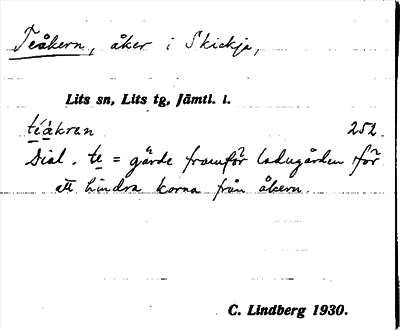 Teåkern, åker i Skickja,
Lits sn, Lits tg, Jämtl. l.
téåkran 252.
Dial. te = gärde framför ladugården för
att hindra korna från åkern.
C. Lindberg 1930.